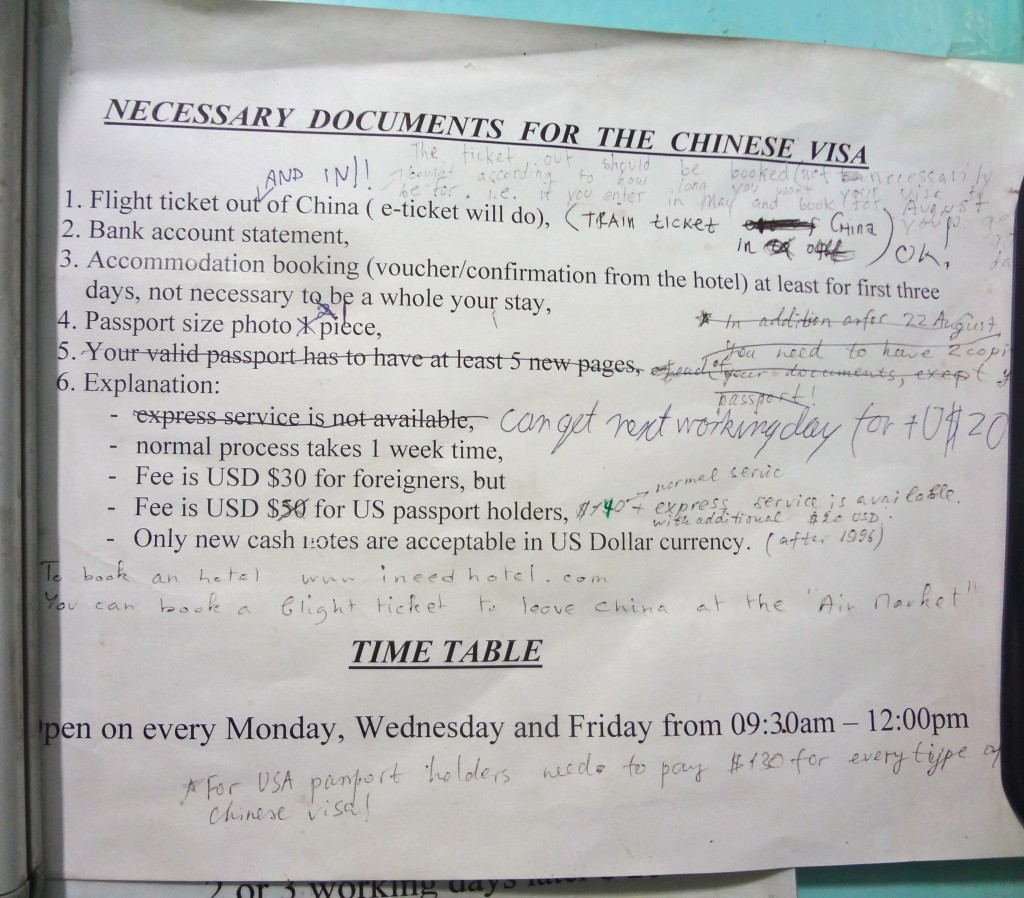 NECESSARY DOCUMENTS FOR THE CHINESE VISA
The ticket out should be booked (not necessarily
bought according to how long you want your visa
be for. i.e. if you enter in May and book for August
AND IN!!
1. Flight ticket out of China ( e-ticket will do), (TRAIN ticket China) OK,
in
2. Bank account statement,
3. Accommodation booking (voucher/confirmation from the hotel) at least for first three
days, not necessary to be a whole your stay,
4. Passport size photo piece,
* In addition 22 August
You need to have 2 copi
5. Your valid passport has to have at least 5 new pages,
of your documents, exept y
passport!
6. Explanation:
- express service is not available, can get next working day for +U$ 20
- normal process takes 1 week time,
- Fee is USD $30 for foreigners, but normal servic
- Fee is USD $50 for US passport holders, $140 + express service is available.
with additional $20 USD.
- Only new cash notes are acceptable in US Dollar currency. (after 1996)
To book an hotel www ineedhotel.com
You can book a flight ticket to leave china at the "Air Market"
TIME TABLE
pen on every Monday, Wednesday and Friday from 09:30am – 12:00pm
* For USA passport holders needs to pay $130 for every type of
Chinese visa!
2 or 3 working days later $